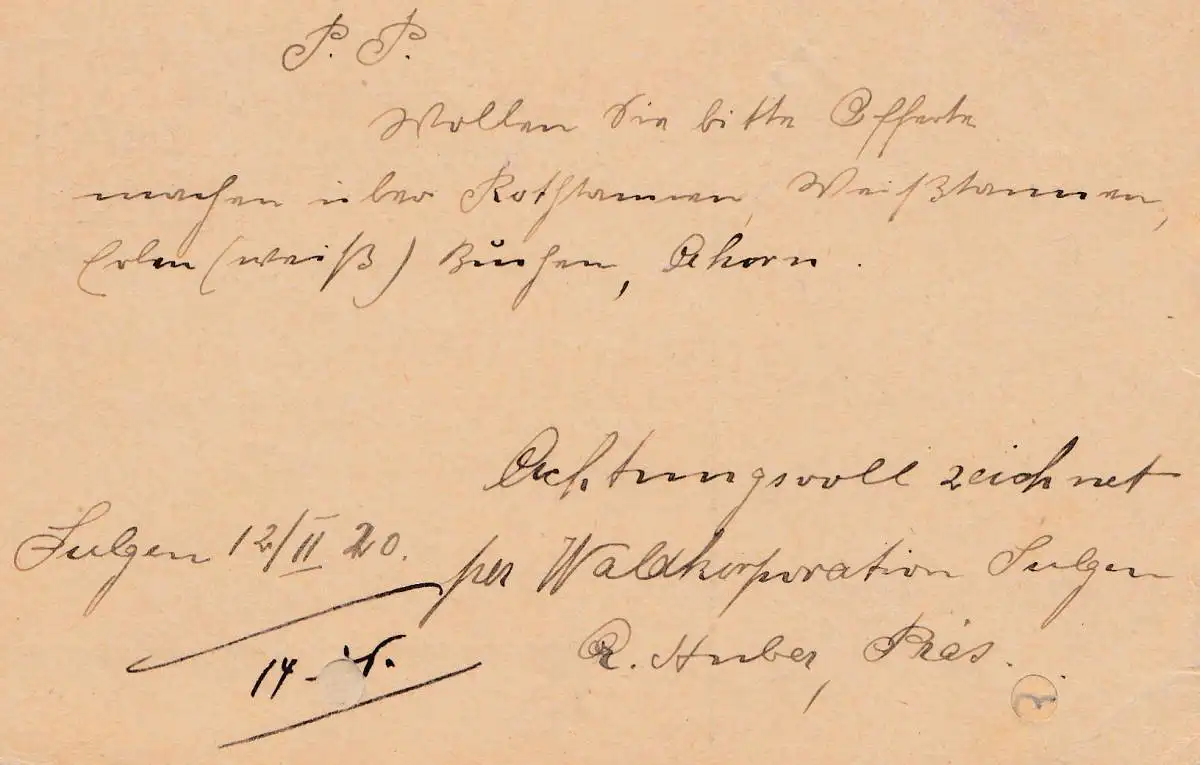 P. P.
Wollen Sie bitte Offerte
machen über Rothtannen, Weißtannen,
Erlen (weiß) Buchen, Ahorn.
Achtungsvoll zeichnet
Sulgen 12/II 20.
per Waldkorporation Sulgen
R. Huber, Präs.
14